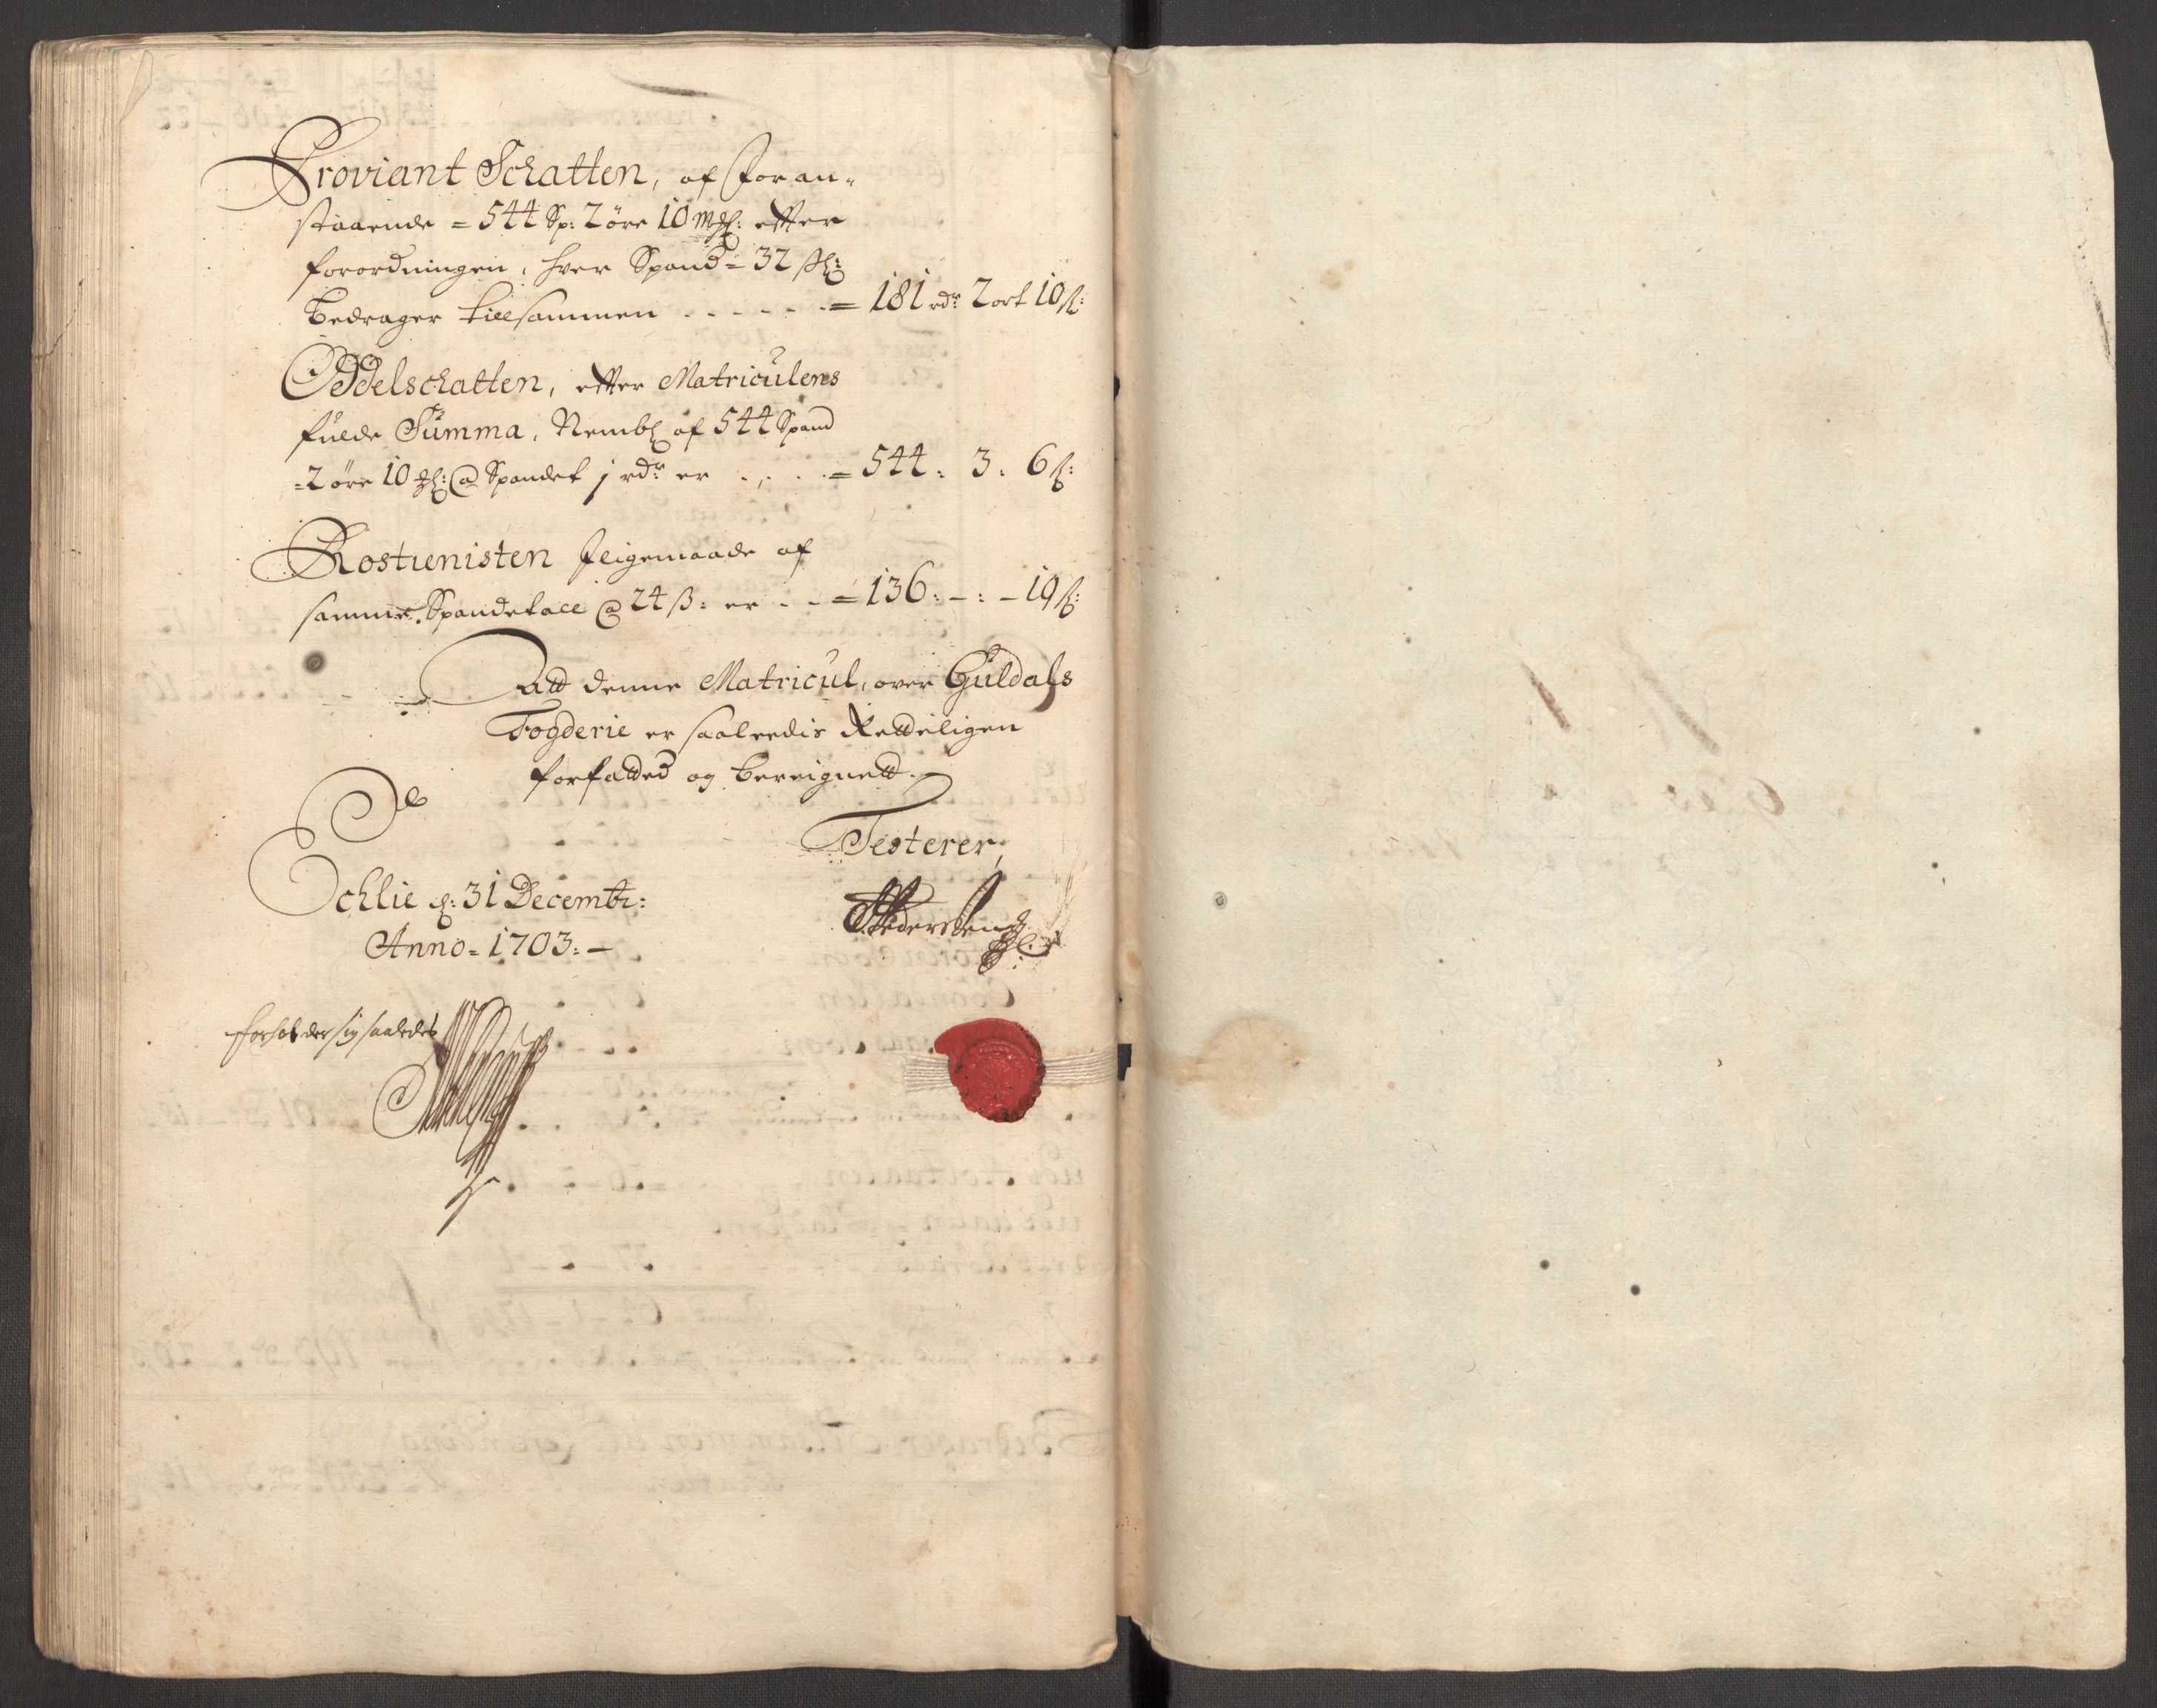 Proviant Schatten, af foran-
staaende = 544 Sp: 2 öre 10 mskl: efter
forordningen, hver Spand = 32 skl:
bedrager tillsammen . . . . . . = 181 rdr 2 ort 10 s:
Oddelschatten, efter Matriculens
fulde Summa, Nembl af 544 Spand
=2 öre 10 skl: @ Spandet 1 rdr er . . . . = 544: 3: 6 s:
Rostienisten Iligemaade af
samme Spandetall @ 24 s: er . . = 136: – : – 19 s:
Att denne Matricul, over Guldals
Fogderie er saaledis Rettiligen
forfatted og beregnett.
Testerer,
Schlie d: 31 Decembr:
Anno = 1703: –
Pedersen
forholder sig saaledes